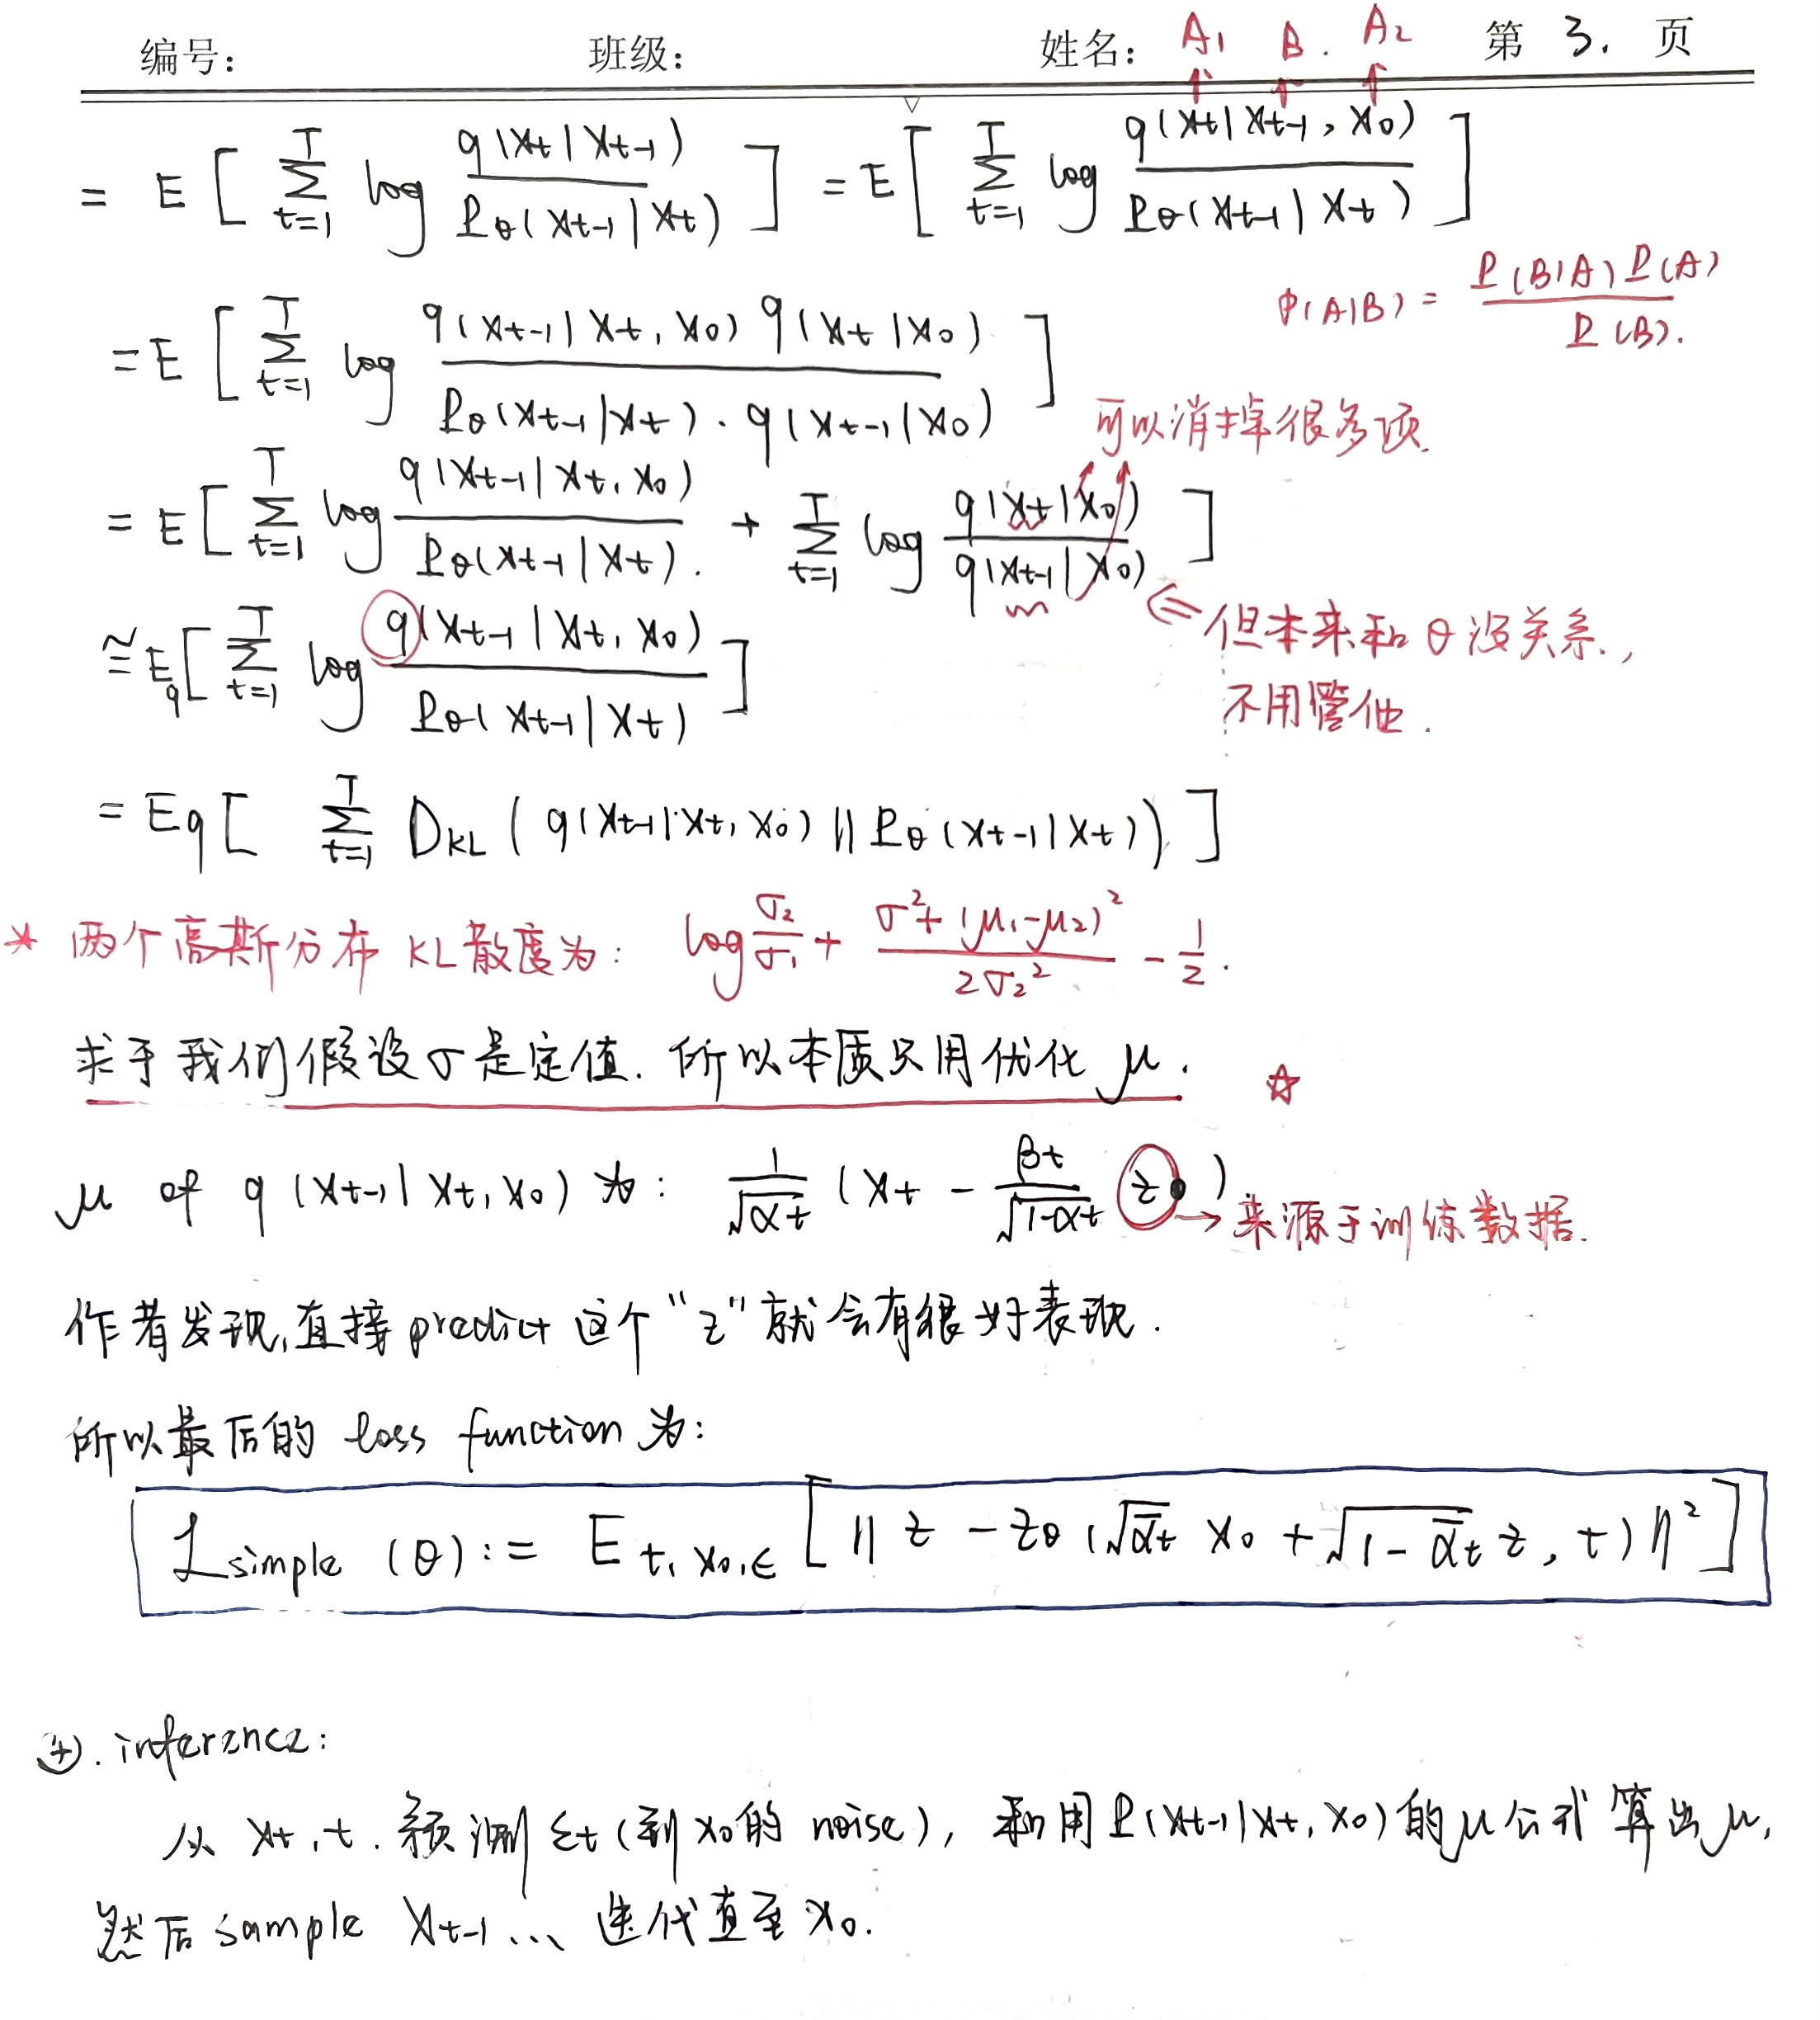 编号: 班级: 姓名: A₁ B. A₂ 第 3. 页
= E [ \sum_{t=1}^{T} log \frac{q(x_t|x_{t-1})}{P_θ(x_{t-1}|x_t)} ] = E [ \sum_{t=1}^{T} log \frac{q(x_t|x_{t-1}, x_0)}{P_θ(x_{t-1}|x_t)} ]
P(A|B) = \frac{P(B|A)P(A)}{P(B)}.
= E [ \sum_{t=1}^{T} log \frac{q(x_{t-1}|x_t, x_0) q(x_t|x_0)}{P_θ(x_{t-1}|x_t) · q(x_{t-1}|x_0)} ]
可以消掉很多项.
= E [ \sum_{t=1}^{T} log \frac{q(x_{t-1}|x_t, x_0)}{P_θ(x_{t-1}|x_t)}. + \sum_{t=1}^{T} log \frac{q(x_t|x_0)}{q(x_{t-1}|x_0)} ]
⇐ 但本来和 θ 没关系,
不用管他.
≅ E_q [ \sum_{t=1}^{T} log \frac{q(x_{t-1}|x_t, x_0)}{P_θ(x_{t-1}|x_t)} ]
= E_q [ \sum_{t=1}^{T} D_{KL} ( q(x_{t-1}|x_t, x_0) || P_θ(x_{t-1}|x_t) ) ]
* 两个高斯分布 KL散度为: log \frac{σ_2}{σ_1} + \frac{σ^2+(μ_1-μ_2)^2}{2σ_2^2} - \frac{1}{2}.
求于我们假设σ是定值. 所以本质只用优化 μ. ☆
μ of q (x_{t-1}|x_t, x_0) 为: \frac{1}{\sqrt{α_t}} (x_t - \frac{β_t}{\sqrt{1-α_t}} z) → 来源于训练数据.
作者发现,直接 predict 这个 "z" 就会有很好表现.
所以最后的 loss function 为:
L_{simple} (θ) := E_{t, x_0, ∈} [ || z - z_θ (\sqrt{\bar{α}_t} x_0 + \sqrt{1-\bar{α}_t} z, t) ||^2 ]
④. inference:
从 x_t, t. 预测 ε_t (到 x_0 的 noise), 利用 P(x_{t-1}|x_t, x_0) 的 μ 公式 算出 μ,
然后 sample x_{t-1} ... 迭代直至 x_0.